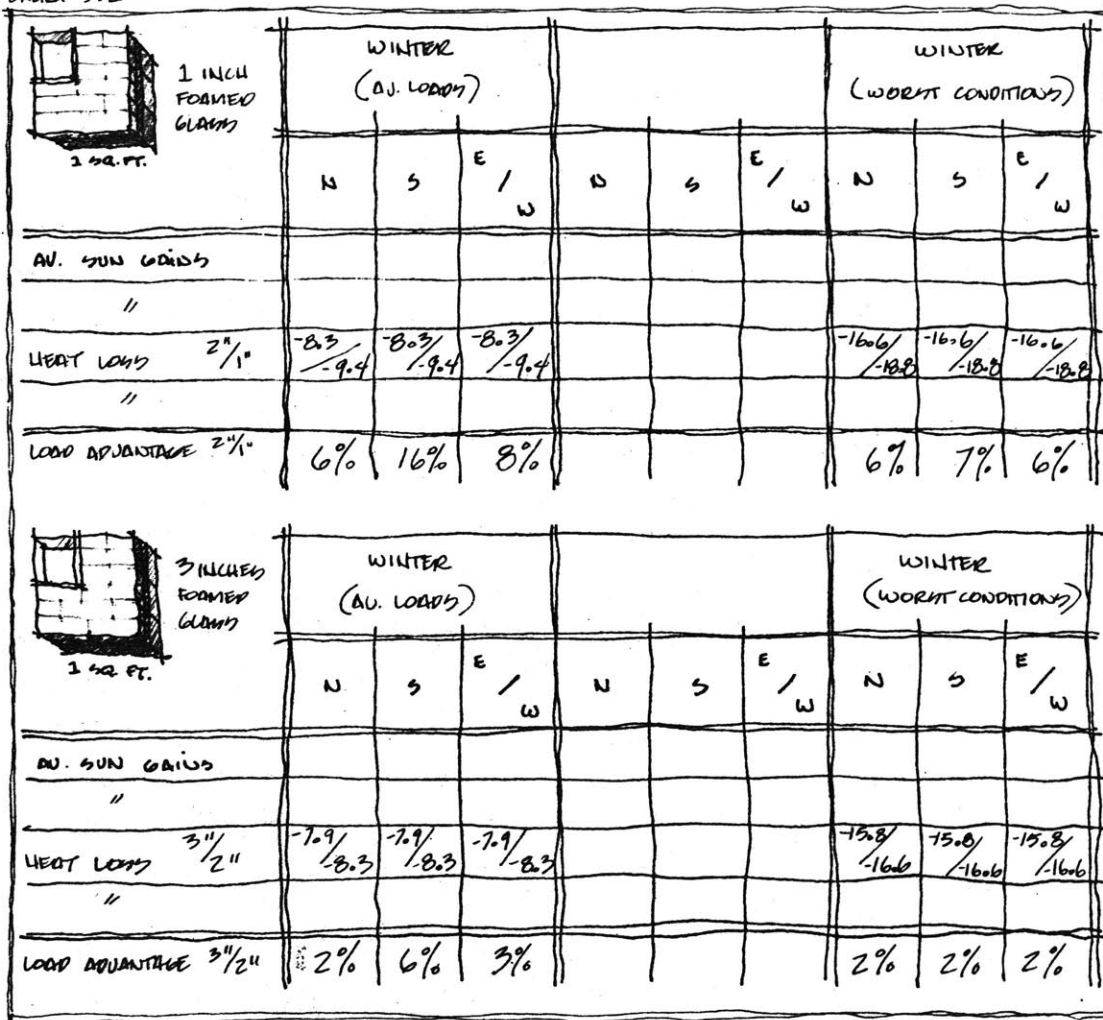 1 INCH
FOAMED
GLASS
1 SQ. FT.
WINTER
(AV. LOADS)
WINTER
(WORST CONDITIONS)
N S E/W N S E/W N S E/W
AV. SUN GAINS
"
HEAT LOSS 2"/1" -8.3/-9.4 -8.3/-9.4 -8.3/-9.4 -16.6/-18.8 -16.6/-18.8 -16.6/-18.8
"
LOAD ADVANTAGE 2"/1" 6% 16% 8% 6% 7% 6%
3 INCHES
FOAMED
GLASS
1 SQ. FT.
WINTER
(AV. LOADS)
WINTER
(WORST CONDITIONS)
N S E/W N S E/W N S E/W
AV. SUN GAINS
"
HEAT LOSS 3"/2" -7.9/-8.3 -7.9/-8.3 -7.9/-8.3 -15.8/-16.6 -15.8/-16.6 -15.8/-16.6
"
LOAD ADVANTAGE 3"/2" 2% 6% 3% 2% 2% 2%